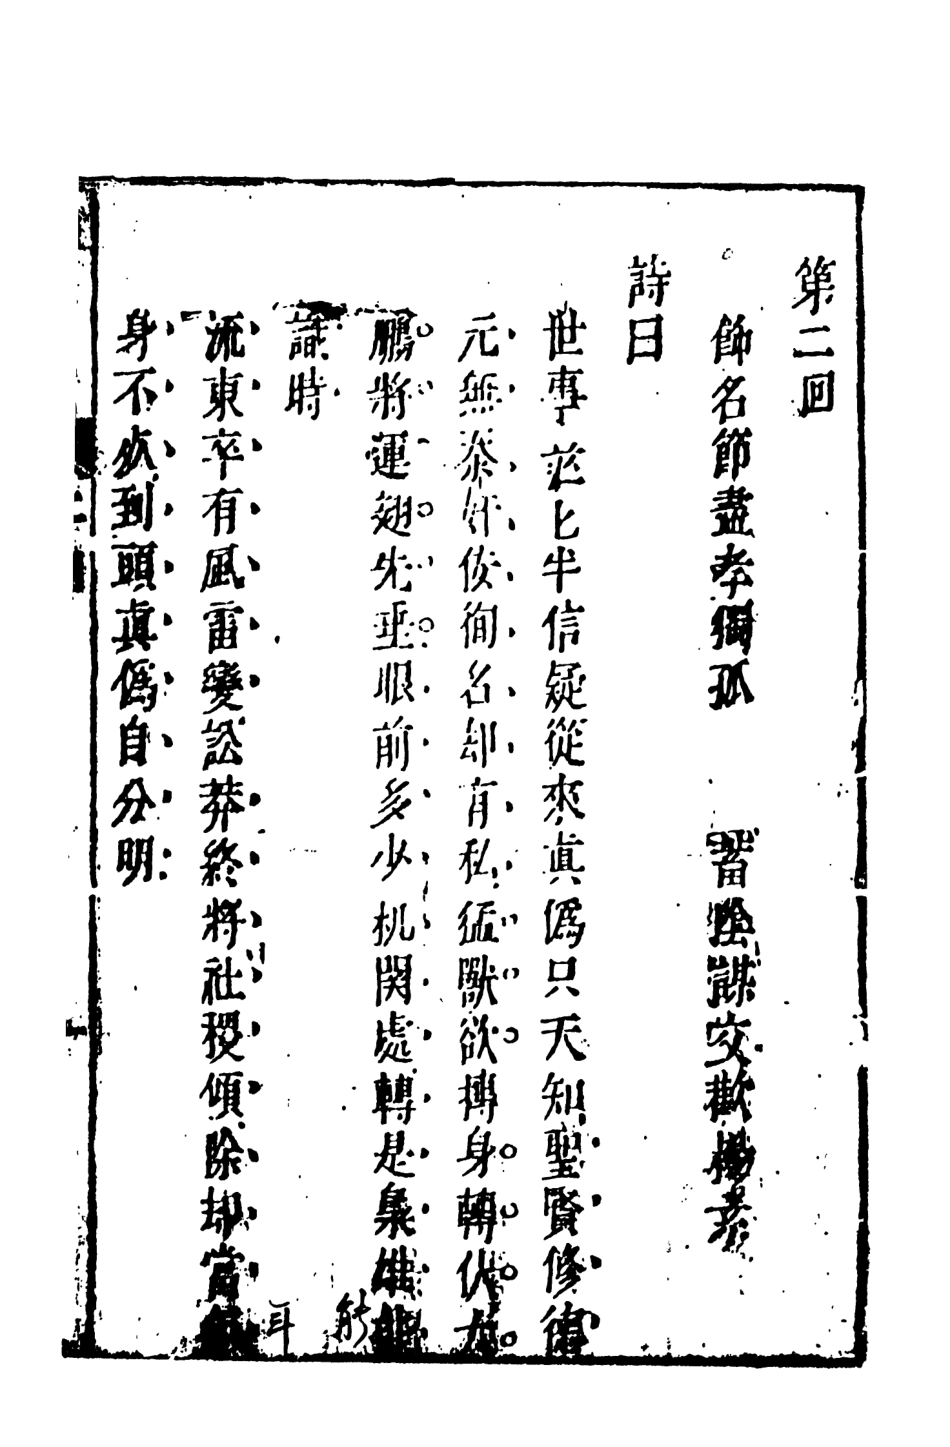 第二回
飾名節盡孝獨孤 蓄陰謀交歡楊素
詩曰
世事茫匕半信疑從來真偽只天知聖賢修德
元無泰奸俊徇名却有私猛獸欲摶身轉伏大
鵬將運翅先垂眼前多少机関處轉是梟雄能
識時
流東卒有風雷變訟莽終將社稷傾除却當年
身不死到頭真偽自分明
能
耳